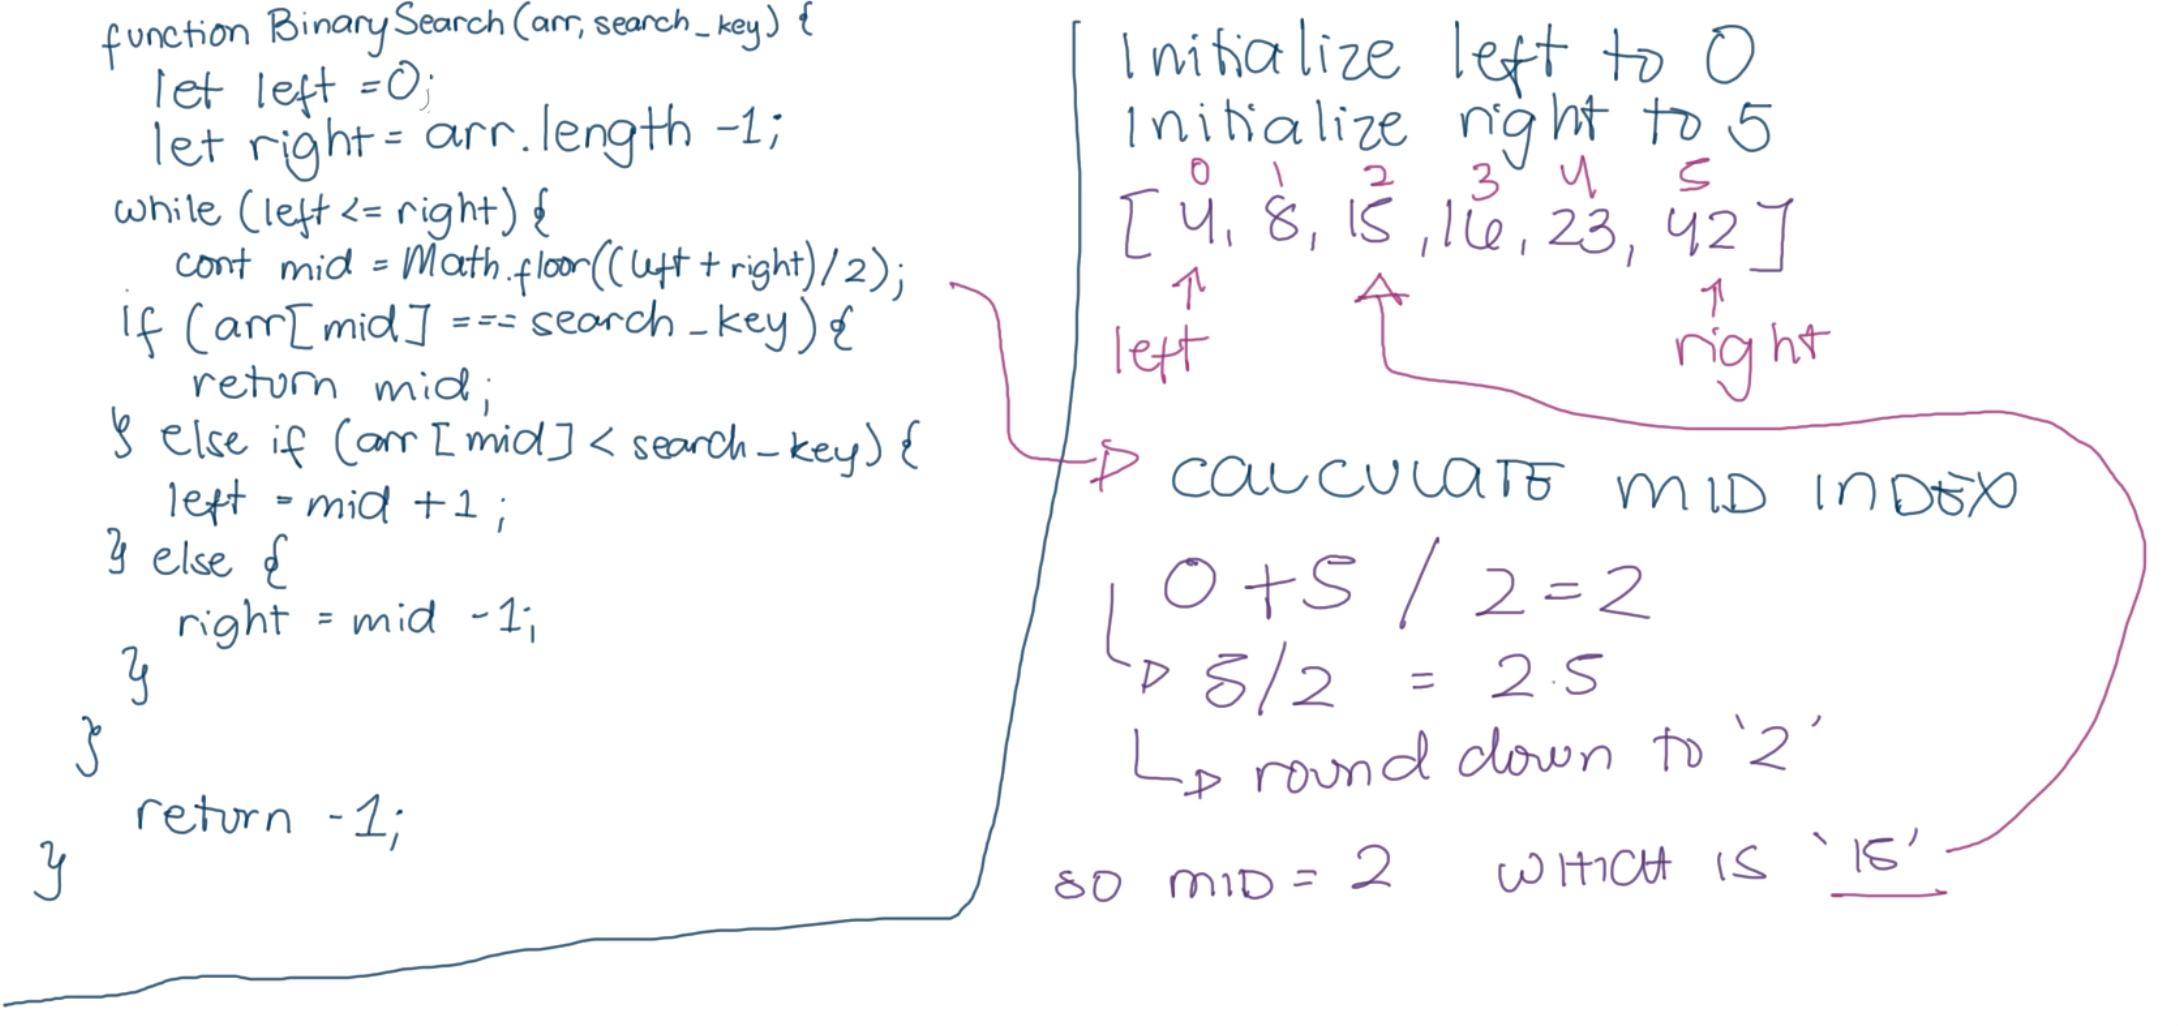 function BinarySearch (arr, search_key) {
let left = 0;
let right = arr.length -1;
while (left <= right) {
cont mid = Math.floor((left + right)/2);
if (arr[mid] === search_key) {
return mid;
} else if (arr [mid] < search_key) {
left = mid +1;
} else {
right = mid -1;
}
}
return -1;
}
Initialize left to 0
Initialize right to 5
0 1 2 3 4 5
[4, 8, 15, 16, 23, 42]
left
right
CALCULATE MID INDEX
0 + 5 / 2 = 2
5/2 = 2.5
round down to '2'
SO MID = 2 WHICH IS '15'